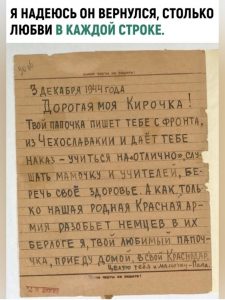 Я НАДЕЮСЬ ОН ВЕРНУЛСЯ, СТОЛЬКО
ЛЮБВИ В КАЖДОЙ СТРОКЕ.
3 ДЕКАБРЯ 1944 ГОДА
ДОРОГАЯ МОЯ КИРОЧКА!
ТВОЙ ПАПОЧКА ПИШЕТ ТЕБЕ С ФРОНТА,
ИЗ ЧЕХОСЛАВАКИИ И ДАЁТ ТЕБЕ
НАКАЗ – УЧИТЬСЯ НА «ОТЛИЧНО», СЛУ-
ШАТЬ МАМОЧКУ И УЧИТЕЛЕЙ, БЕ-
РЕЧЬ СВОЁ ЗДОРОВЬЕ. А КАК ТОЛЬ-
КО НАШАЯ РОДНАЯ КРАСНАЯ АР-
МИЯ РАЗОБЬЕТ НЕМЦЕВ В ИХ
БЕРЛОГЕ Я, ТВОЙ ЛЮБИМЫЙ ПАПО-
ЧКА, ПРИЕДУ ДОМОЙ, В СВОЙ КРАСНОДАР.
ЦЕЛУЮ ТЕБЯ И МАМОЧКУ – ПАПА.